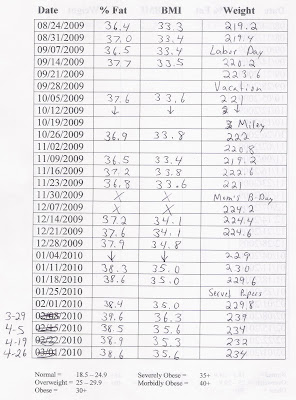 Date % Fat BMI Weight
08/24/2009 36.4 33.3 219.2
08/31/2009 37.0 33.4 219.4
09/07/2009 36.5 33.4 Labor Day
09/14/2009 37.7 33.5 220.2
09/21/2009 223.6
09/28/2009 Vacation
10/05/2009 37.6 33.6 221
10/12/2009 ↓ ↓ ↓
10/19/2009 Miley
10/26/2009 36.9 33.8 222
11/02/2009 220.8
11/09/2009 36.5 33.4 219.2
11/16/2009 37.2 33.8 222.6
11/23/2009 36.8 33.6 221
11/30/2009 X X Mom's B-Day
12/07/2009 X X 224.2
12/14/2009 37.2 34.1 224.4
12/21/2009 37.6 34.1 224.6
12/28/2009 37.9 34.8
01/04/2010 ↓ ↓ 229
01/11/2010 38.3 35.0 230
01/18/2010 38.6 35.0 229.6
01/25/2010 Served Papers
02/01/2010 38.4 35.0 229.8
3-29 02/08/2010 39.6 36.3 239
4-5 02/15/2010 38.5 35.6 234
4-19 02/22/2010 38.9 35.3 232
4-26 03/01/2010 38.6 35.6 234
Normal = 18.5 – 24.9 Severely Obese = 35+
Overweight = 25 – 29.9 Morbidly Obese = 40+
Obese = 30+